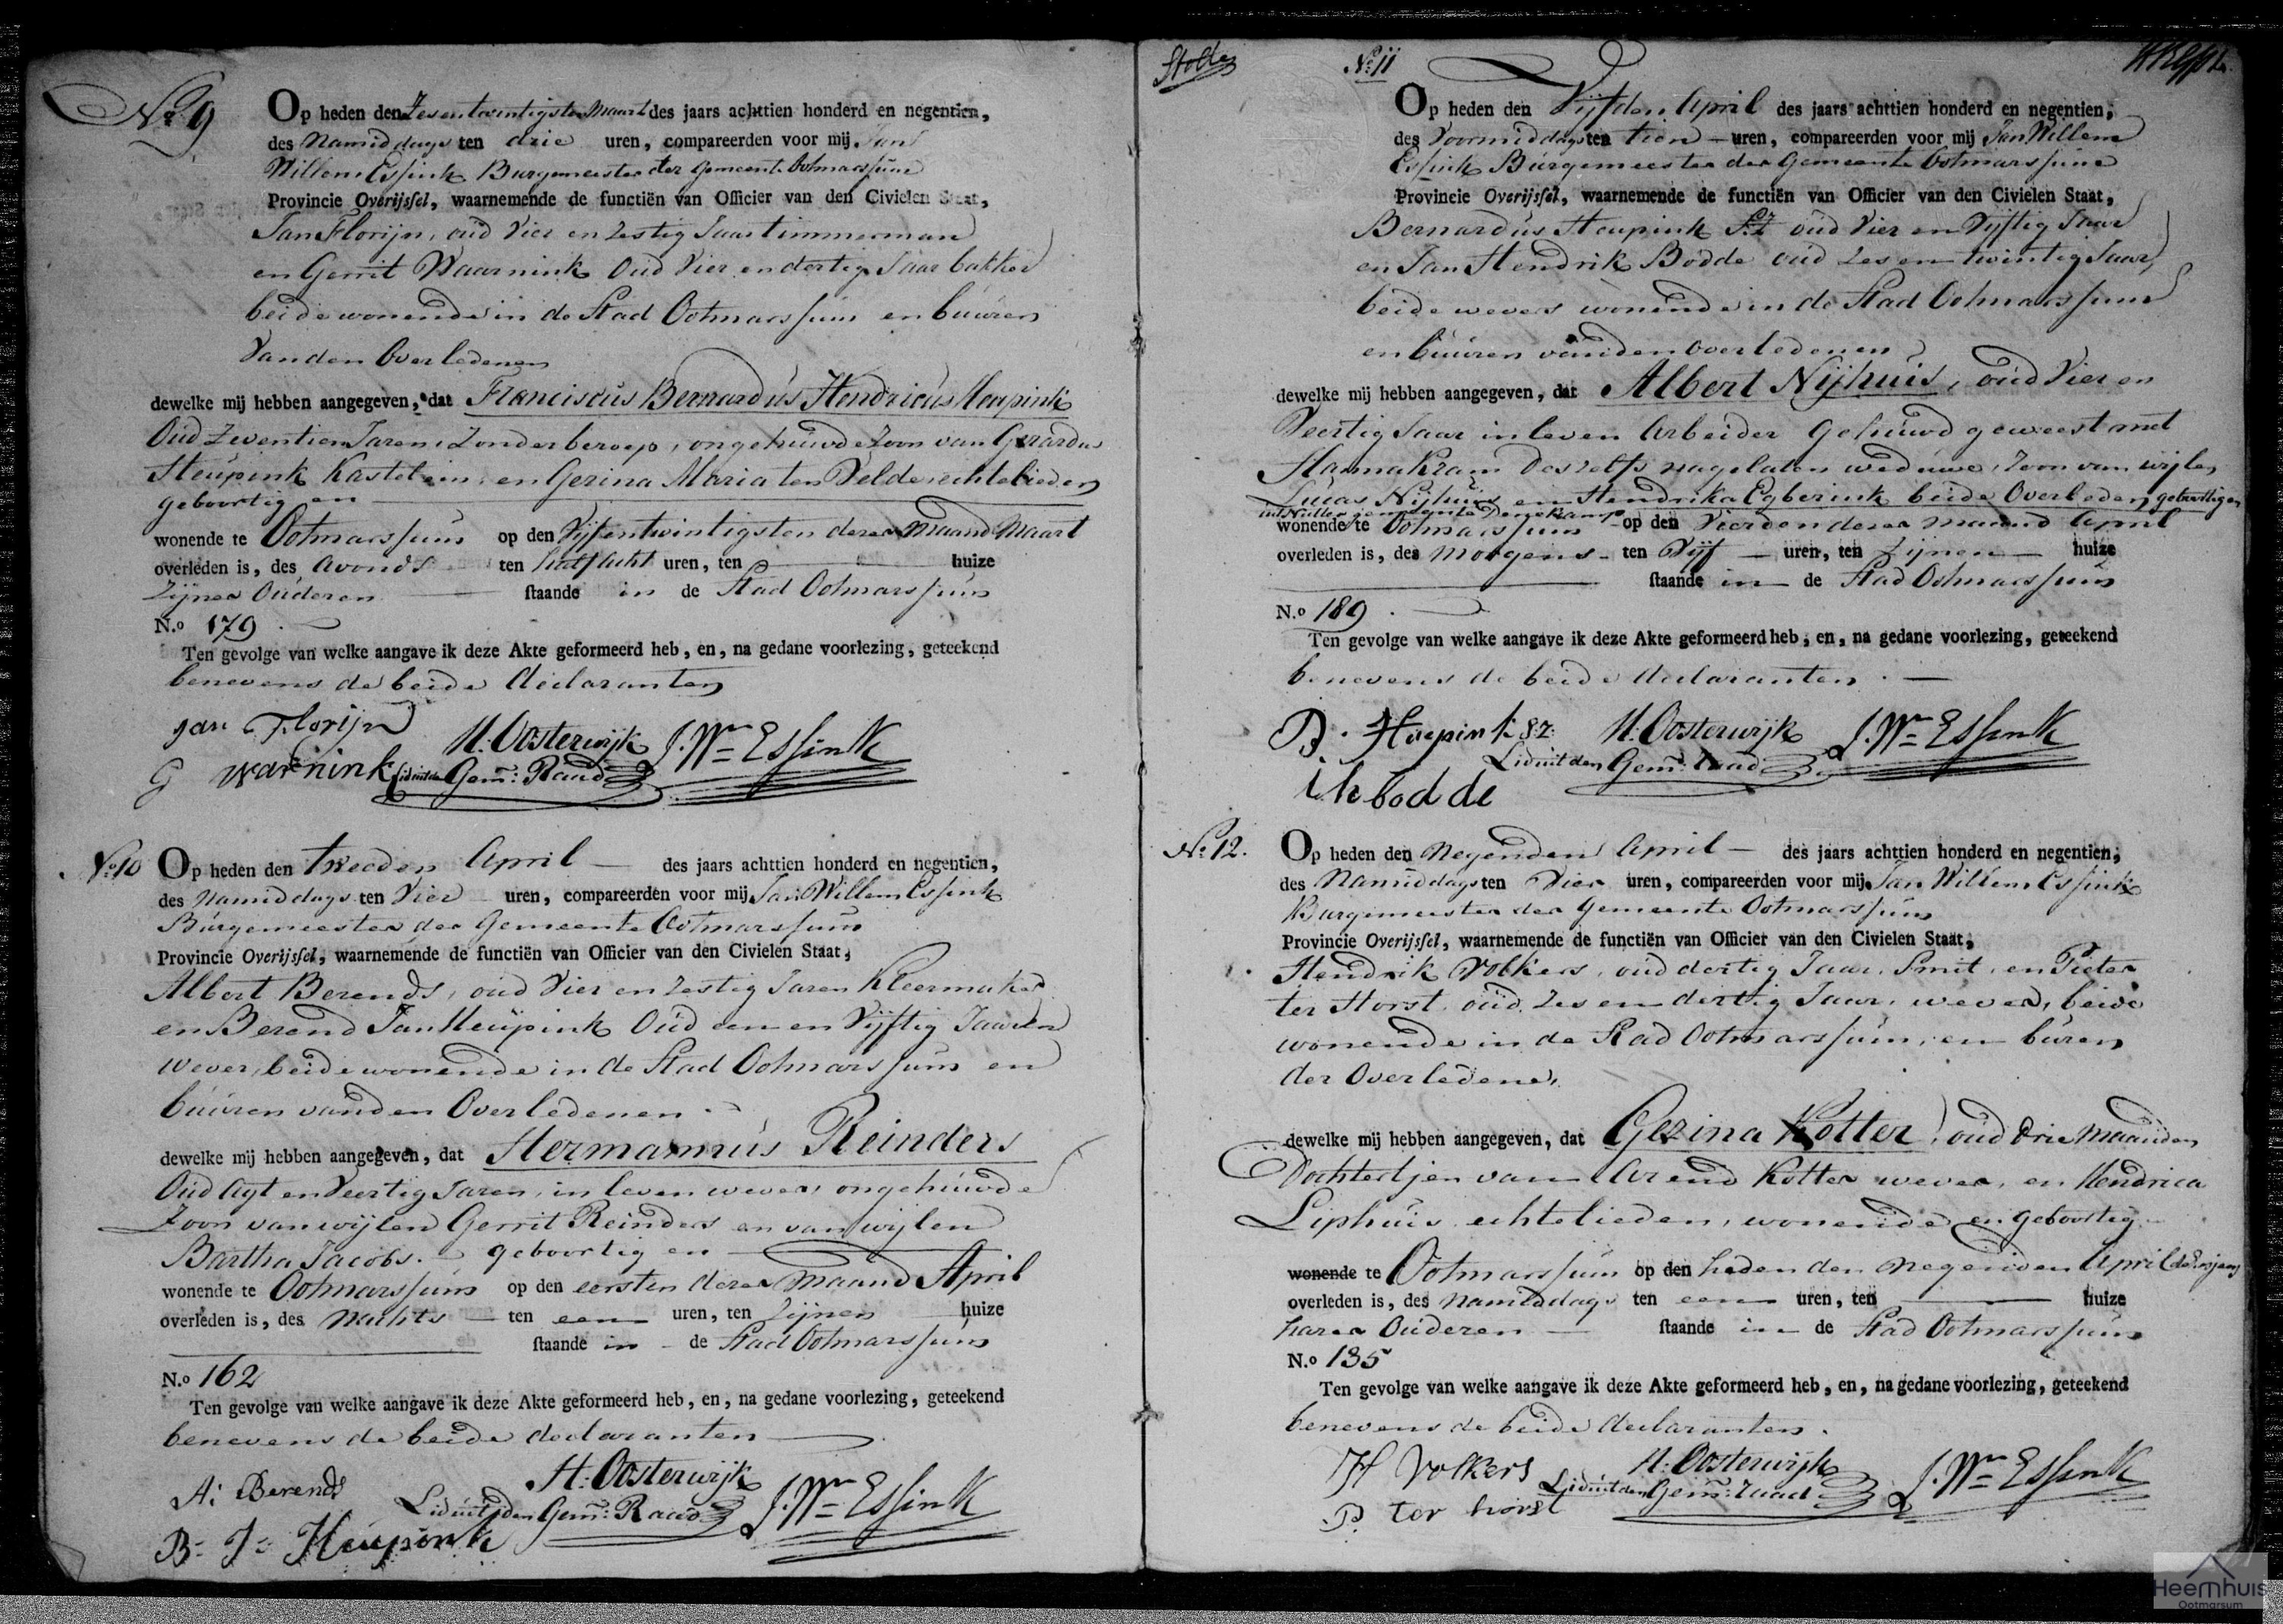 No 9
Op heden den Zesentwintigsten Maart des jaars achttien honderd en negentien,
des Namiddags ten drie uren, compareerden voor mij Jan
Willem Essink Burgemeester der Gemeente Ootmarssum
Provincie Overijssel, waarnemende de functiën van Officier van den Civielen Staat,
Jan Florijn, oud Vier en Zestig Jaar timmerman
en Gerrit Waarnink Oud Vier en dertig Jaar bakker
beide wonende in de Stad Ootmarssum en buuren
Van den Overledenen
dewelke mij hebben aangegeven, dat Franciscus Bernardus Hendricus Heupink
Oud Zeventien Jaren, Zonder beroep, ongehuwde Zoon van Gerardus
Heupink Kastelein, en Gezina Maria ten Velde echtelieden
geboortig en
wonende te Ootmarssum op den Vijfentwintigsten dezer Maand Maart
overleden is, des Avonds ten half acht uren, ten huize
Zijner Ouderen staande in de Stad Ootmarssum
N.o 179
Ten gevolge van welke aangave ik deze Akte geformeerd heb, en, na gedane voorlezing, geteekend
benevens de beide declaranten
Jan Florijn
H: Oosterwijk J. Wm Essink
G Warnink Lid uit den Gem: Raad
No 10
Op heden den tweeden April des jaars achttien honderd en negentien,
des Namiddags ten Vier uren, compareerden voor mij Jan Willem Essink
Burgemeester der Gemeente Ootmarssum
Provincie Overijssel, waarnemende de functiën van Officier van den Civielen Staat,
Albert Berends, oud Vier en Zestig Jaren Kleermaker
en Berend Jan Heupink Oud een en Vijftig Jaaren
wever, beide wonende in de Stad Ootmarssum en
buuren van den Overledenen
dewelke mij hebben aangegeven, dat Hermannus Reinders
Oud Agt en Veertig Jaren, in leven wever, ongehuwde
Zoon van wijlen Gerrit Reinders en van wijlen
Bartha Jacobs. geboortig en
wonende te Ootmarssum op den eersten dezer Maand April
overleden is, des Nachts ten een uren, ten Zijnen huize
staande in de Stad Ootmarssum
N.o 162
Ten gevolge van welke aangave ik deze Akte geformeerd heb, en, na gedane voorlezing, geteekend
benevens de beide declaranten
A: Berends H: Oosterwijk J. Wm Essink
Lid uit den Gem: Raad
B: J: Heupink
No 11
Op heden den Vijfden April des jaars achttien honderd en negentien,
des Voormiddags ten tien uren, compareerden voor mij Jan Willem
Essink Burgemeester der Gemeente Ootmarssum
Provincie Overijssel, waarnemende de functiën van Officier van den Civielen Staat,
Bernardus Heupink Sz oud Vier en Vijftig Jaar
en Jan Hendrik Bodde oud Zes en twintig Jaar,
beide wevers wonende in de Stad Ootmarssum
en buuren van den overledenen
dewelke mij hebben aangegeven, dat Albert Nijhuis, oud Vier en
Veertig Jaar in leven Arbeider Gehuwd geweest met
Hanna Kram deszelfs nagelaten weduwe, Zoon van wijlen
Lucas Nijhuis en Hendrika Egberink beide Overleden, geboortig en
uit Nutter gemeente Denekamp
wonende te Ootmarssum op den Vierden dezer maand April
overleden is, des Morgens ten Vijf uren, ten Zijnen huize
staande in de Stad Ootmarssum
N.o 189
Ten gevolge van welke aangave ik deze Akte geformeerd heb, en, na gedane voorlezing, geteekend
benevens de beide declaranten.
B. Heupink Sz H: Oosterwijk J. Wm Essink
Lid uit den Gem: Raad
i h bodde
No 12.
Op heden den Negenden April des jaars achttien honderd en negentien,
des Namiddags ten Vier uren, compareerden voor mij Jan Willem Essink
Burgemeester der Gemeente Ootmarssum
Provincie Overijssel, waarnemende de functiën van Officier van den Civielen Staat,
Hendrik Volkers, oud dertig Jaar, Smit, en Pieter
ter Horst, oud Zes en dertig Jaar, wever, beide
wonende in de Stad Ootmarssum, en buren
der Overledene,
dewelke mij hebben aangegeven, dat Gezina Kotter, oud drie Maanden
Dochtertjen van Arend Kotter wever, en Hendrica
Liphuis echtelieden, wonende en geboortig
wonende te Ootmarssum op den heden den Negenden April
overleden is, des Namiddags ten een uren, ten huize
harer Ouderen staande in de Stad Ootmarssum
N.o 135
Ten gevolge van welke aangave ik deze Akte geformeerd heb, en, na gedane voorlezing, geteekend
benevens de beide declaranten.
H Volkers H: Oosterwijk J. Wm Essink
Lid uit den Gem: raad
P. ter horst
Heemhuis
Ootmarsum